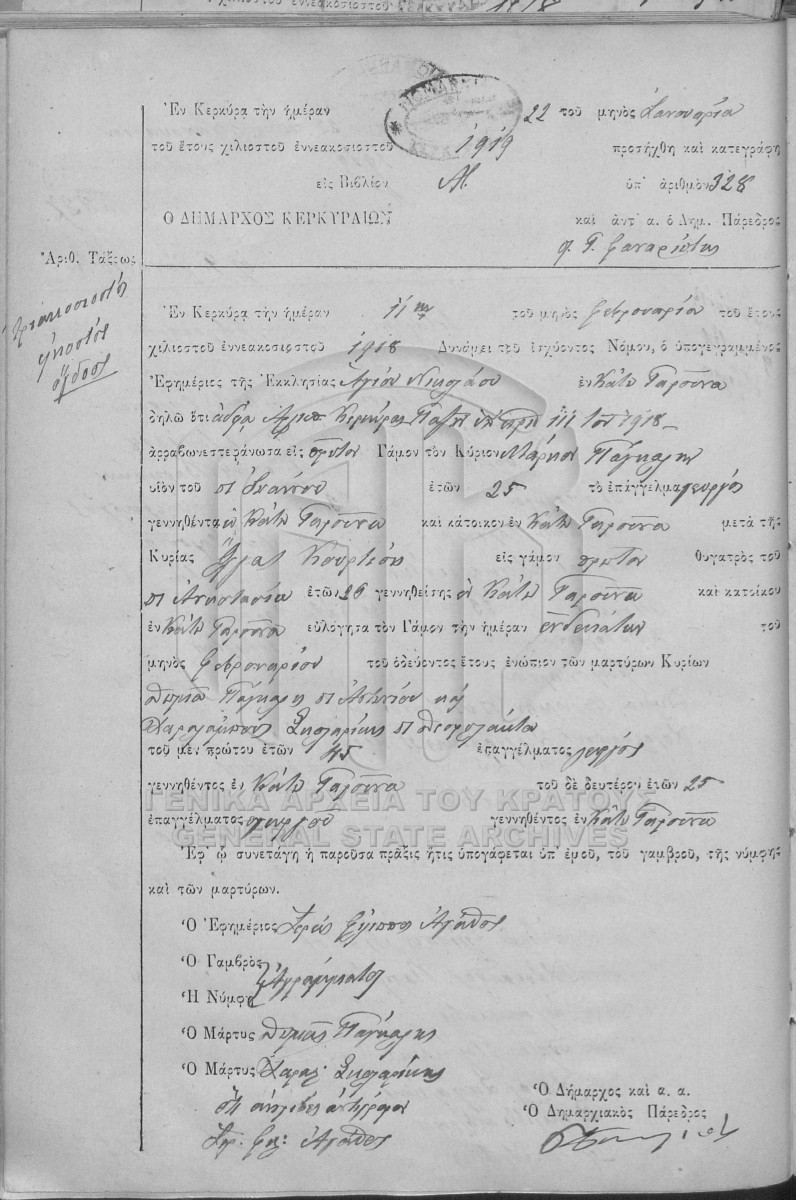 Ἐν Κερκύρᾳ τὴν ἡμέραν 22 τοῦ μηνὸς Ἰανουαρίου
τοῦ ἔτους χιλιοστοῦ ἐννεακοσιοστοῦ 1919 προσήχθη καὶ κατεγράφη
εἰς Βιβλίον ὑπ' ἀριθμὸν 328
Ο ΔΗΜΑΡΧΟΣ ΚΕΡΚΥΡΑΙΩΝ καὶ ἀντ' α. ὁ Δημ. Πάρεδρος
Ἀριθ. Τάξεως
τριακοσιοστὴ
εἰκοστὸς
ὄγδοος
Ἐν Κερκύρᾳ τὴν ἡμέραν 11ην τοῦ μηνὸς Φεβρουαρίου τοῦ ἔτους
χιλιοστοῦ ἐννεακοσιοστοῦ 1918 Δυνάμει τοῦ ἰσχύοντος Νόμου, ὁ ὑπογεγραμμένος
Ἐφημέριος τῆς Ἐκκλησίας Ἁγίου Νικολάου ἐν Κάτω Γαροῦνα
δηλῶ ὅτι ἀδείᾳ 1918
ἀρραβωνεστεφάνωσα εἰς πρῶτον Γάμον τὸν Κύριον Μάρκον Πάγκαλην
υἱὸν τοῦ Ἰωάννου ἐτῶν 25 τὸ ἐπάγγελμα γεωργὸς
γεννηθέντα ἐν Κάτω Γαροῦνα καὶ κάτοικον ἐν Κάτω Γαροῦνα μετὰ τῆς
Κυρίας Κουρτέση εἰς γάμον πρῶτον θυγατρὸς τοῦ
Ἀναστασίου ἐτῶν 26 γεννηθείσης ἐν Κάτω Γαροῦνα καὶ κατοίκου
ἐν Κάτω Γαροῦνα εὐλόγησα τὸν Γάμον τὴν ἡμέραν ἑνδεκάτην τοῦ
μηνὸς Φεβρουαρίου τοῦ ὁδεύοντος ἔτους ἐνώπιον τῶν μαρτύρων Κυρίων
Θωμᾶ Πάγκαλη Ἀντωνίου καὶ
Χαραλάμπους Θεοφυλάκτου
τοῦ μὲν πρώτου ἐτῶν 45 ἐπαγγέλματος γεωργὸς
γεννηθέντος ἐν Κάτω Γαροῦνα τοῦ δὲ δευτέρου ἐτῶν 25
ΓΕΝΙΚΑ ΑΡΧΕΙΑ ΤΟΥ ΚΡΑΤΟΥΣ
ἐπαγγέλματος γεωργοῦ γεννηθέντος ἐν Κάτω Γαροῦνα
GENERAL STATE ARCHIVES
Ἐφ' ᾧ συνετάγη ἡ παροῦσα πρᾶξις ἥτις ὑπογράφεται ὑπ' ἐμοῦ, τοῦ γαμβροῦ, τῆς νύμφης
καὶ τῶν μαρτύρων.
Ὁ Ἐφημέριος Ἱερεὺς Φίλιππος Ἀγάθος
Ὁ Γαμβρὸς
Ἀγράμματοι
Ἡ Νύμφη
Ὁ Μάρτυς Θωμᾶς Πάγκαλης
Ὁ Μάρτυς Χαραλ.
Ὁ Δήμαρχος καὶ α. α.
Ὁ Δημαρχιακὸς Πάρεδρος